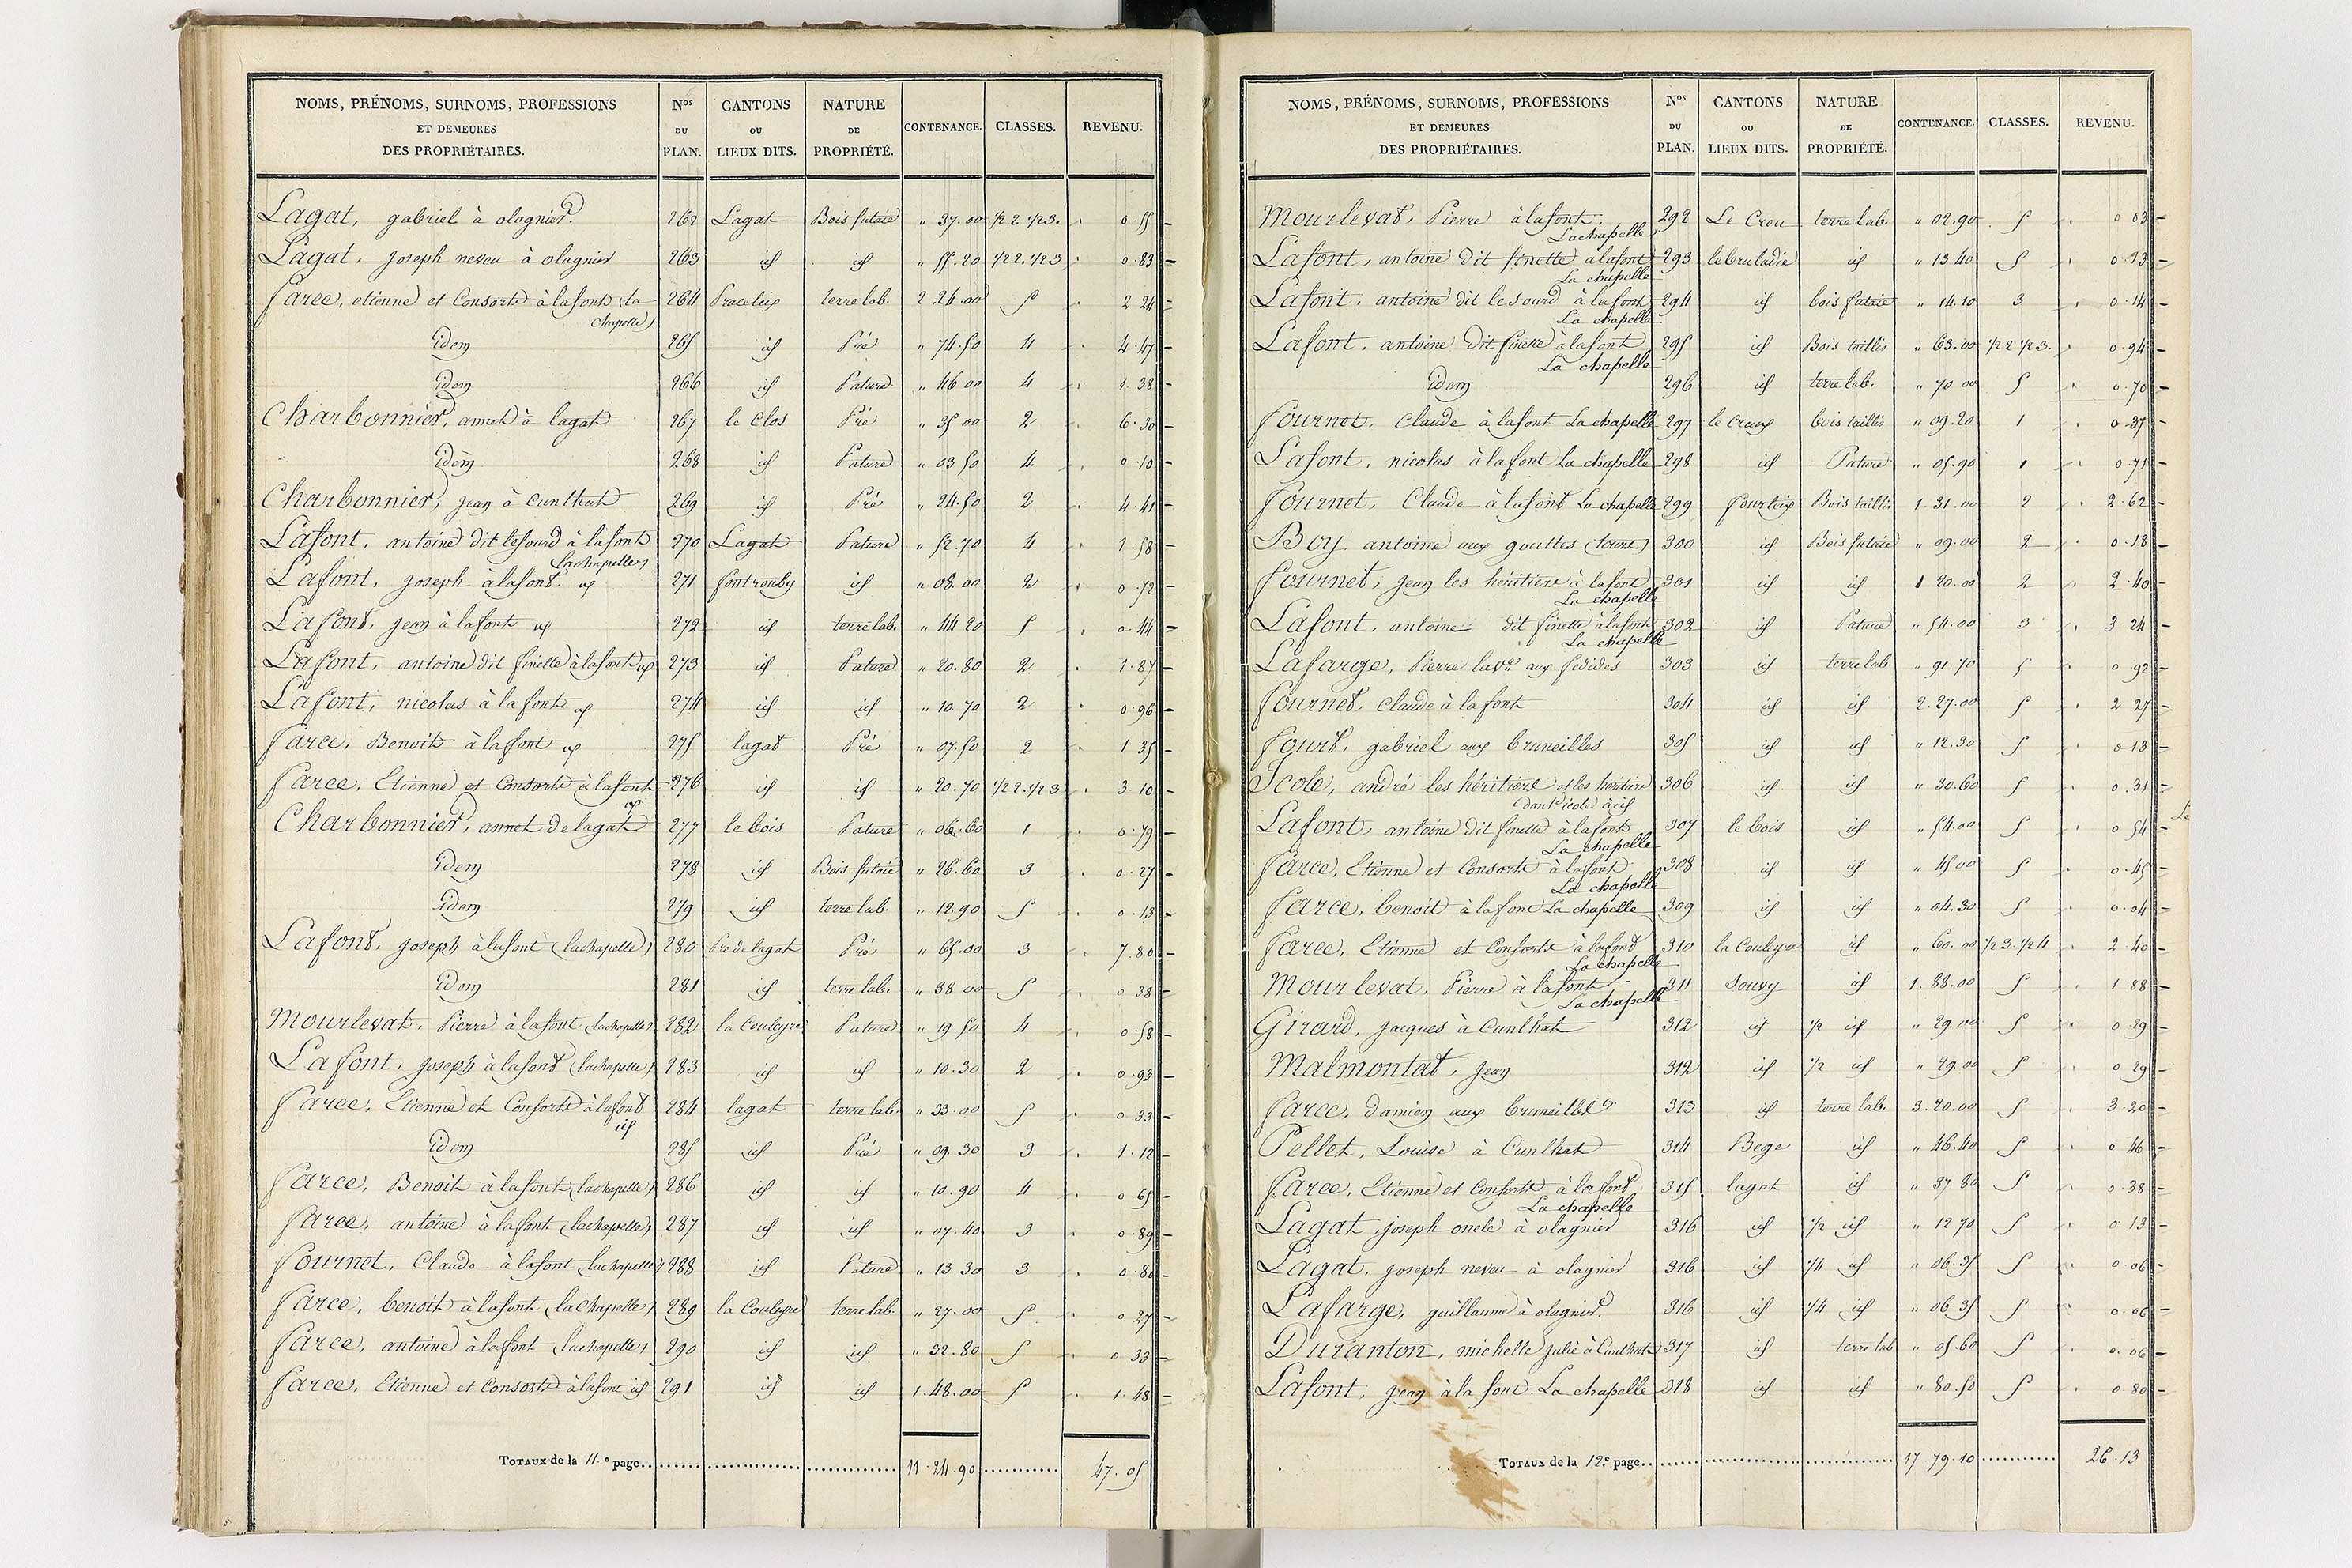 NOMS, PRÉNOMS, SURNOMS, PROFESSIONS ET DEMEURES DES PROPRIÉTAIRES. Nos DU PLAN. CANTONS OU LIEUX DITS. NATURE DE PROPRIÉTÉ. CONTENANCE. CLASSES. REVENU.
Lagat, gabriel à olagnier. 262 Lagat Bois futaie " 37.00 1/2 2. 1/2 3. 0.55
Lagat, Joseph neveu à olagnier 263 id id " 55.20 1/2 2. 1/2 3 0.83
farce, etienne et Consorts à lafont (la chapelle) 264 terre lab. 2.24.00 5 2.24
Idem 265 id Pré " 74.50 4 4.47
Idem 266 id Pature " 46.00 4 1.38
Charbonnier, annet à lagat 267 le Clos Pré " 35.00 2 6.30
Idem 268 id Pature " 03.50 4 0.10
Charbonnier, jean à Cunlhat 269 id Pré " 24.50 2 4.41
Lafont, antoine dit lesourd à lafont (Lachapelle) 270 Lagat Pature " 52.70 4 1.58
Lafont, Joseph à lafont. id 271 fontrouby id " 08.00 2 0.72
Lafont, jean à lafont id 272 id terre lab. " 44.20 5 0.44
Lafont, antoine dit finette à lafont id 273 id Pature " 20.80 2 1.87
Lafont, nicolas à lafont id 274 id id " 10.70 2 0.96
farce, Benoit à lafont id 275 lagat Pré " 07.50 2 1.35
farce, Etienne et Consorts à lafont id 276 id id " 20.70 1/2 2. 1/2 3 3.10
Charbonnier, annet de lagat 277 le bois Pature " 06.60 1 0.79
Idem 278 id Bois futaie " 26.60 3 0.27
Idem 279 id terre lab. " 12.90 5 0.13
Lafont, joseph à lafont (lachapelle) 280 Pré de lagat Pré " 65.00 3 7.80
Idem 281 id terre lab. " 38.00 5 0.38
Mourlevat, Pierre à lafont (lachapelle) 282 la Couleyre Pature " 19.50 4 0.58
Lafont, joseph à lafont (lachapelle) 283 id id " 10.30 2 0.93
farce, Etienne et Consorts à lafont id 284 lagat terre lab. " 33.00 5 0.33
Idem 285 id Pré " 09.30 3 1.12
farce, Benoit à lafont (lachapelle) 286 id id " 10.90 4 0.65
farce, antoine à lafont (lachapelle) 287 id id " 07.40 3 0.89
fournet, Claude à lafont (lachapelle) 288 id Pature " 13.30 3 0.80
farce, benoit à lafont (lachapelle) 289 la Couleyre terre lab. " 27.00 5 0.27
farce, antoine à lafont (lachapelle) 290 id id " 32.80 5 0.33
farce, Etienne et Consorts à lafont id 291 id id 1.48.00 5 1.48
TOTAUX de la 11.e page 11.24.90 47.05
NOMS, PRÉNOMS, SURNOMS, PROFESSIONS ET DEMEURES DES PROPRIÉTAIRES. Nos DU PLAN. CANTONS OU LIEUX DITS. NATURE DE PROPRIÉTÉ. CONTENANCE. CLASSES. REVENU.
Mourlevat, Pierre à lafont. Lachapelle 292 Le Creu terre lab. " 02.90 5 0.03
Lafont, antoine dit finette à lafont La chapelle 293 lebruladie id " 13.40 5 0.13
Lafont, antoine dit le sourd à lafont La chapelle 294 id bois futaie " 14.10 3 0.14
Lafont, antoine dit finette à lafont La chapelle 295 id Bois taillis " 63.00 1/2 2 1/2 3. 0.94
Idem 296 id terre lab. " 70.00 5 0.70
fournet, Claude à lafont La chapelle 297 le Creux bois taillis " 09.20 1 0.37
Lafont, nicolas à lafont La chapelle 298 id Pature " 05.90 1 0.71
fournet, Claude à lafont La chapelle 299 Bois taillis 1.31.00 2 2.62
Boy antoine aux gouttes (tours) 300 id Bois futaie " 09.00 2 0.18
fournet, jean les héritiers à lafont La chapelle 301 id id 1 20.00 2 2.40
Lafont, antoine dit finette à lafont La chapelle 302 id Pature " 54.00 3 3.24
Lafarge, Pierre aux fédides 303 id terre lab. " 91.70 5 0.92
fournet, Claude à la font 304 id id 2.27.00 5 2.27
fourt, gabriel aux bruneilles 305 id id " 12.30 5 0.13
Icole, andré les héritiers et les héritiers à id 306 id id " 30.60 5 0.31
Lafont, antoine dit finette à lafont La chapelle 307 le bois id " 54.00 5 0.54
farce, Etienne et Consorts à lafont La chapelle 308 id id " 45.00 5 0.45
farce, benoit à lafont La chapelle 309 id id " 04.30 5 0.04
farce, Etienne et Consorts à lafont La chapelle 310 la Couleyre id " 60.00 1/2 3. 1/2 4 2.40
Mourlevat, Pierre à lafont La chapelle 311 Souvy id 1.88.00 5 1.88
Girard, jacques à Cunlhat 312 id 1/2 id " 29.00 5 0.29
Malmontat, jean 312 id 1/2 id " 29.00 5 0.29
farce, damien aux bruneilles 313 id terre lab. 3.20.00 5 3.20
Pellet, Louise à Cunlhat 314 Bege id " 46.40 5 0.46
farce, Etienne et Consorts à lafont La chapelle 315 lagat id " 37.80 5 0.38
Lagat, joseph oncle à olagnier 316 id 1/2 id " 12.70 5 0.13
Lagat, joseph neveu à olagnier 316 id 1/4 id " 06.35 5 0.06
Lafarge, guillaume à olagnier. 316 id 1/4 id " 06.35 5 0.06
Duranton, michelle julie à Cunlhat 317 id terre lab " 05.60 5 0.06
Lafont, jean à la font. La chapelle 318 id id " 80.50 5 0.80
TOTAUX de la 12.e page 17.79.10 26.13